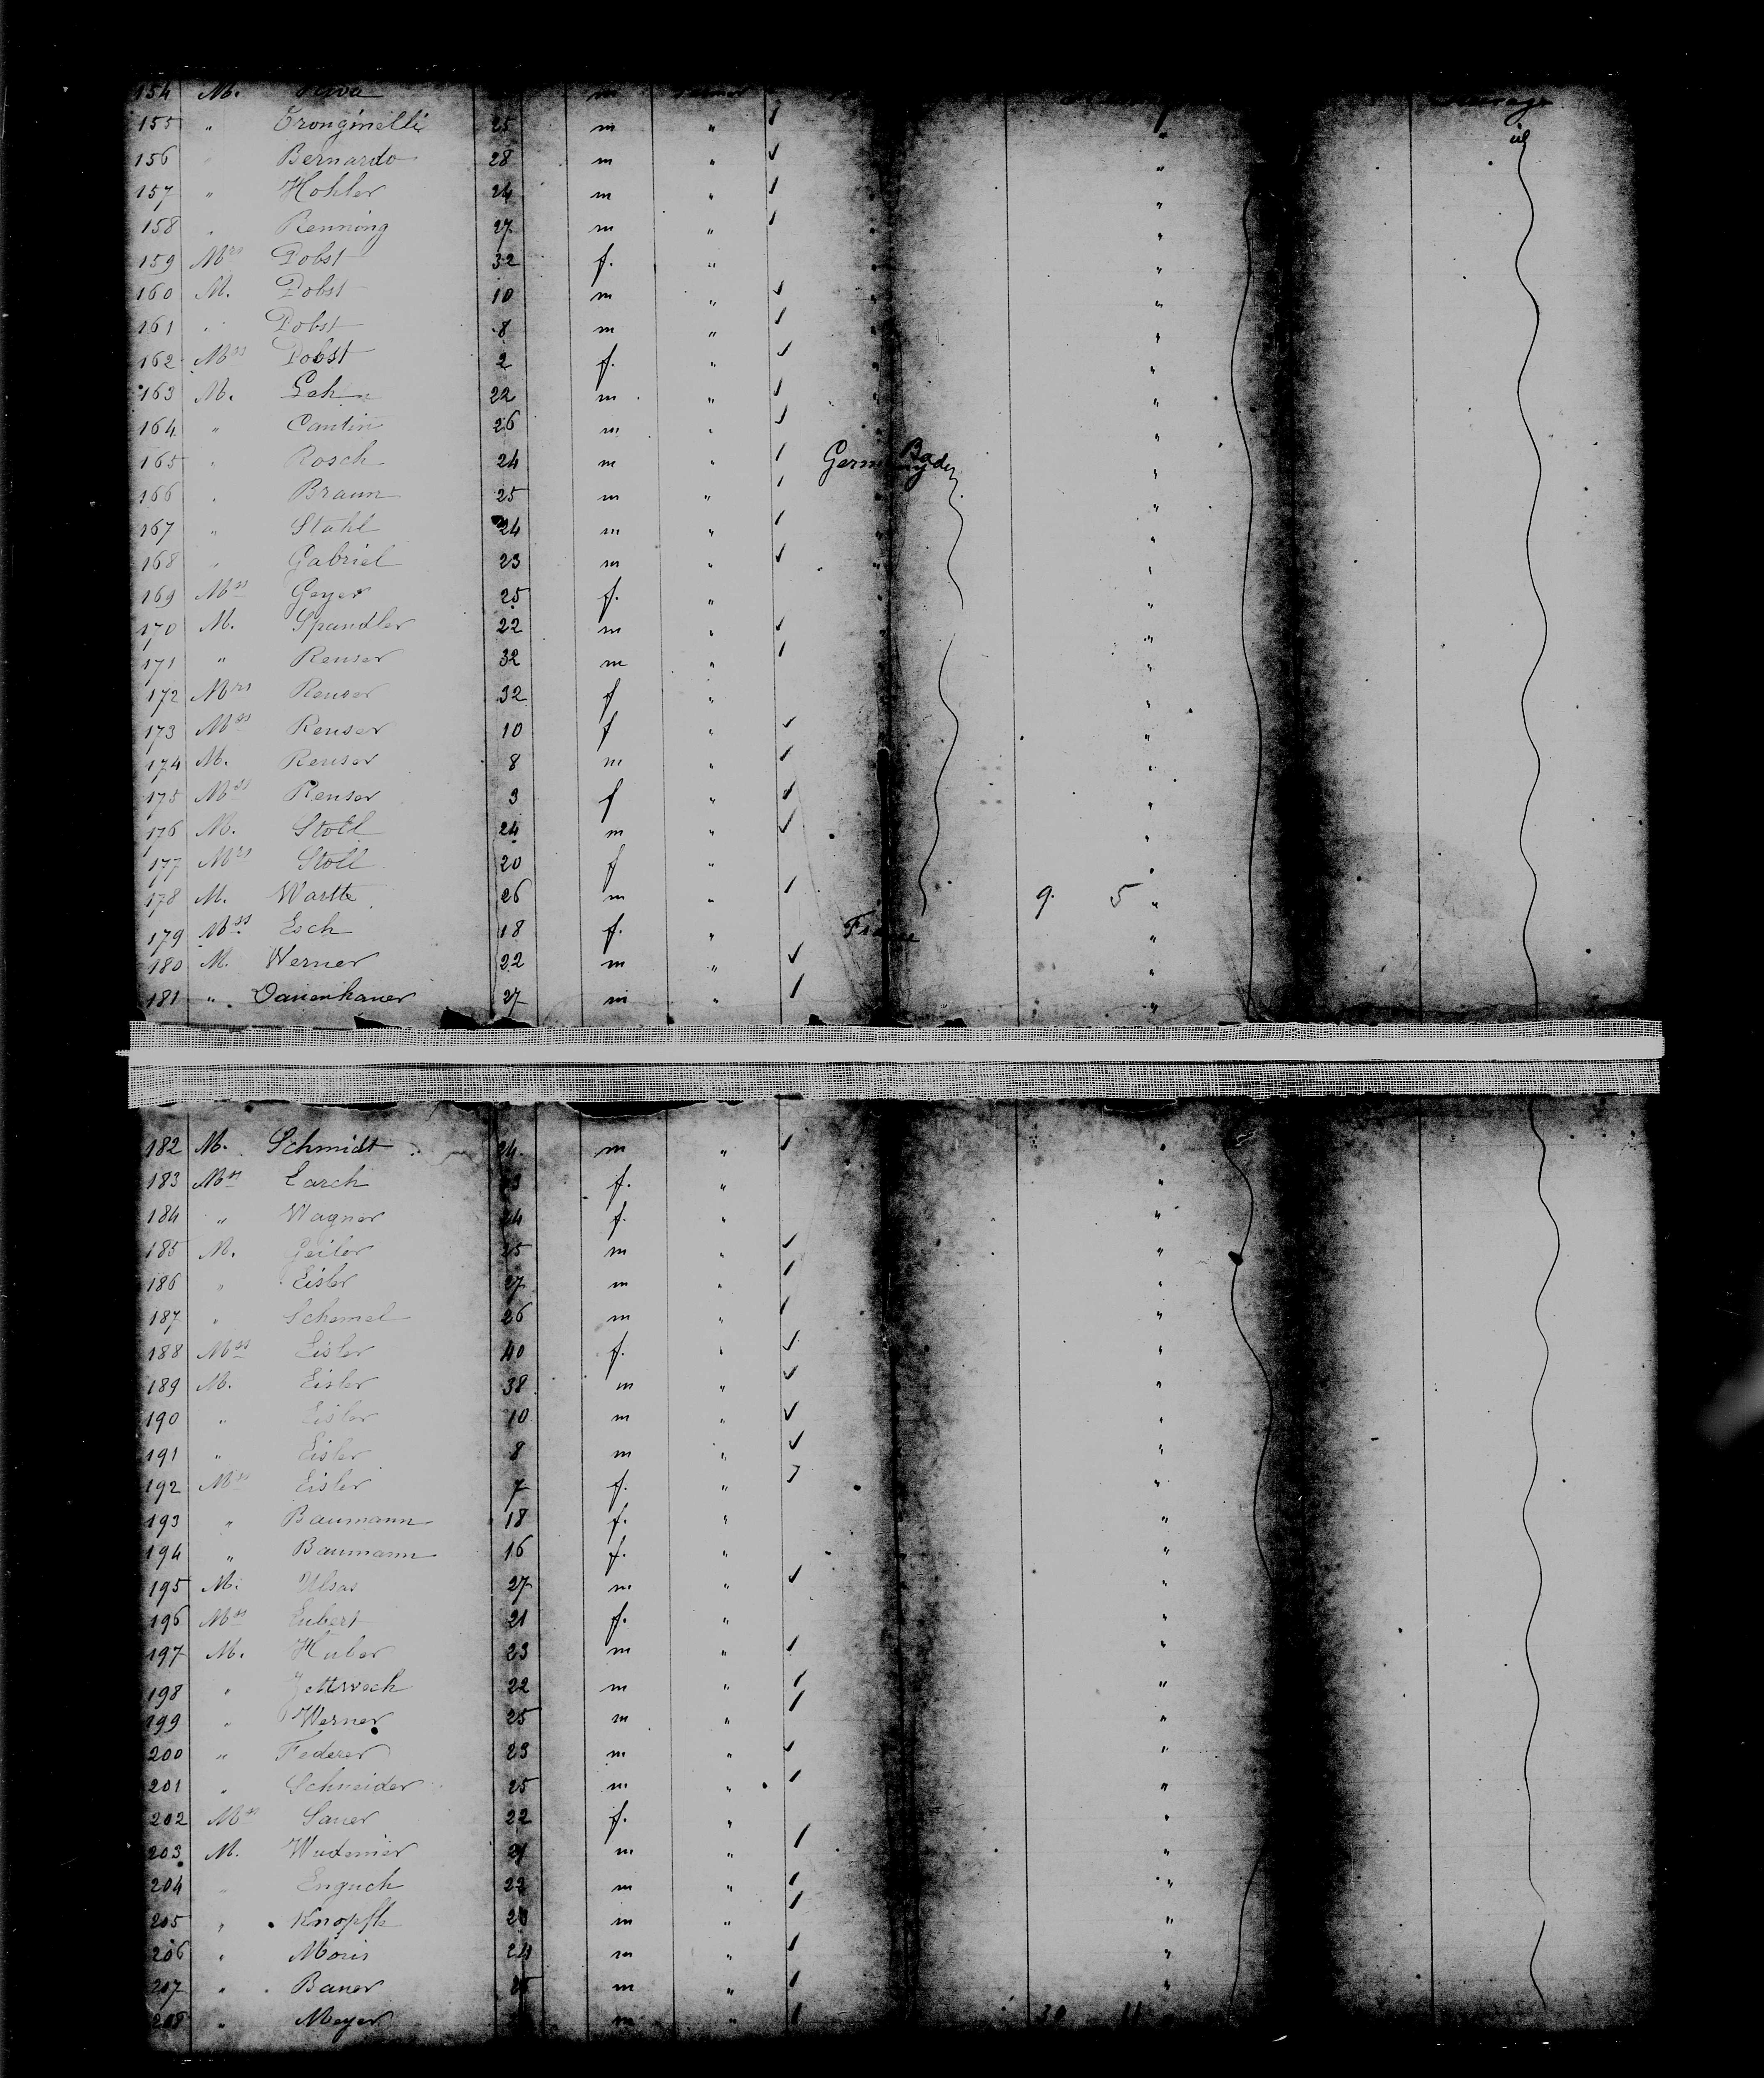 154 M. m
155 " Tronginelli 25 m "
156 " Bernardo 28 m " "
157 " Hohler 24 m " "
158 " Renning 27 m " "
159 Mrs Dobst 32 f. " "
160 M. Dobst 10 m " "
161 " Dobst 8 m " "
162 Mss Dobst 2 f. " "
163 M. 22 m " "
164 " Cantin 26 m " "
165 " Rosch 24 m " Germany Baden "
166 " Braun 25 m " "
167 " Stahl 24 m " "
168 " Gabriel 23 m " "
169 Mss Geyer 25 f. " "
170 M. Spandler 22 m " "
171 " Renser 32 m " "
172 Mrs Renser 32 f " "
173 Mss Renser 10 f " "
174 M. Renser 8 m " "
175 Mss Renser 3 f " "
176 M. Stoll 24 m " "
177 Mrs Stoll 20 f " "
178 M. Wartte 26 m " 9. 5 "
179 Mss Esch 18 f. " France "
180 M. Werner 22 m " "
181 " Dauenhauer 27 m " "
182 M. Schmidt 24 m " "
183 Mss Larch f. " "
184 " Wagner 24 f. " "
185 M. Geiler 25 m " "
186 " Eisler 27 m " "
187 " Schemel 26 m " "
188 Mss Eisler 40 f. " "
189 M. Eisler 38 m " "
190 " Eisler 10 m " "
191 " Eisler 8 m " "
192 Mss Eisler 7 f. " "
193 " Baumann 18 f. " "
194 " Baumann 16 f. " "
195 M. Ulsas 27 m " "
196 Mss Eubert 21 f. " "
197 M. Huber 23 m " "
198 " 22 m " "
199 " Werner 25 m " "
200 " Federer 23 m " "
201 " Schneider 25 m " "
202 Mss Sauer 22 f. " "
203 M. 21 m " "
204 " Enguch 22 m " "
205 " m " "
206 " Moris 24 m " "
207 " Bauer m " "
208 " Meyer m " 30 11